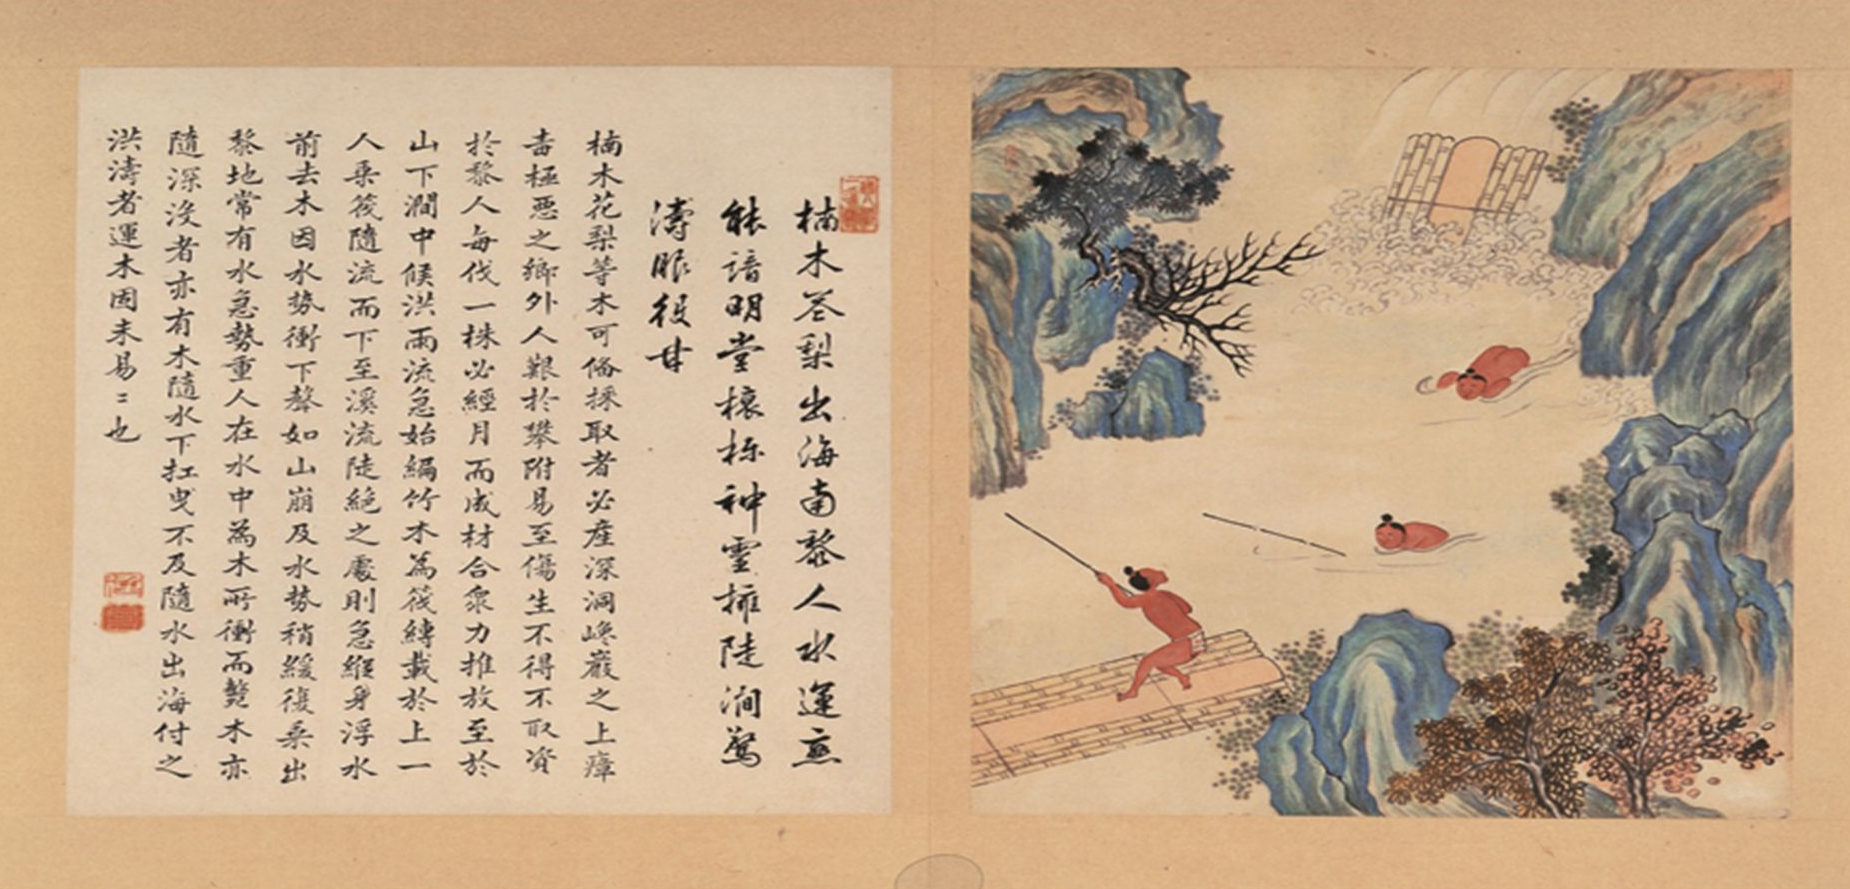 楠木花梨出海南黎人水運亦
能諳明堂榱棟神靈擁陡澗驚
濤眠役甘
楠木花梨等木可俻採取者必產深洞巉巖之上瘴
毒極惡之鄉外人艱於攀附易至傷生不得不取資
於黎人每伐一株必經月而成材合衆力推放至於
山下澗中候洪雨流急始編竹木為筏縛載於上一
人乘筏隨流而下至溪流陡絕之處則急縱身浮水
前去木因水勢衝下聲如山崩及水勢稍緩復乘出
黎地常有水急勢重人在水中為木所衝而斃木亦
隨深沒者亦有木隨水下扛曳不及隨水出海付之
洪濤者運木固未易〻也